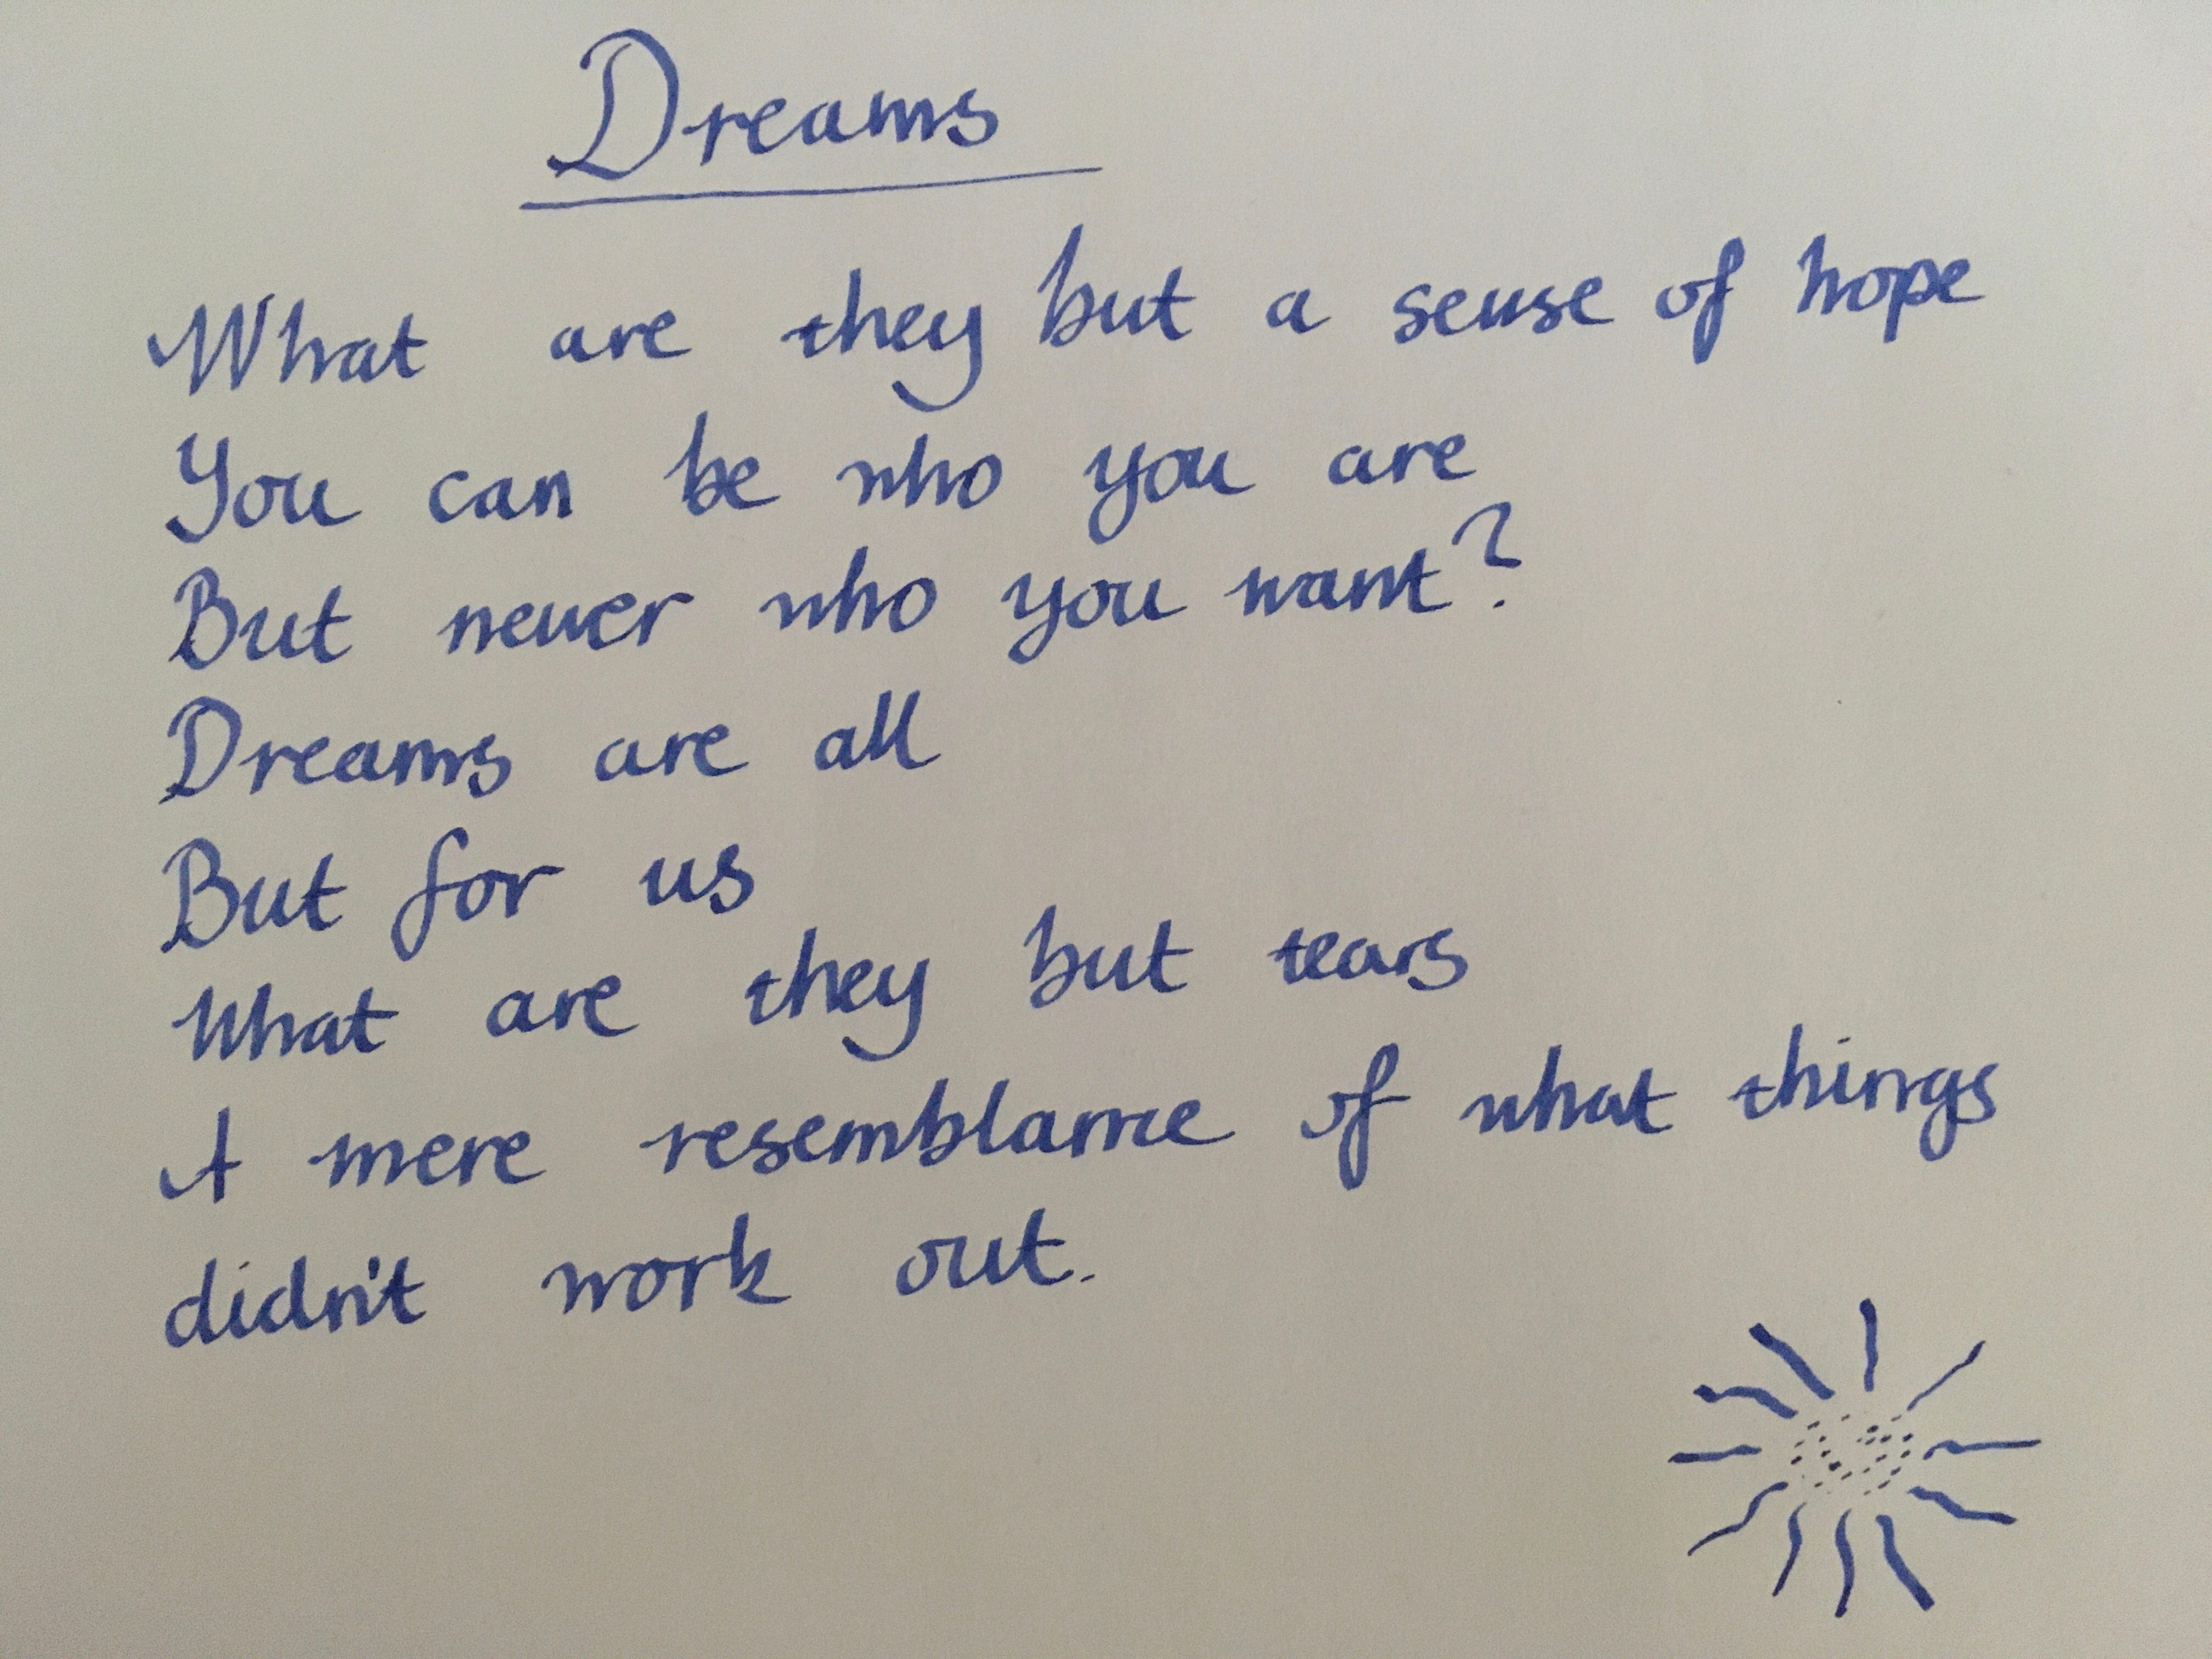 Dreams
What are they but a sense of hope
You can be who you are
But never who you want?
Dreams are all
But for us
What are they but tears
A mere resemblance of what things
didn't work out.